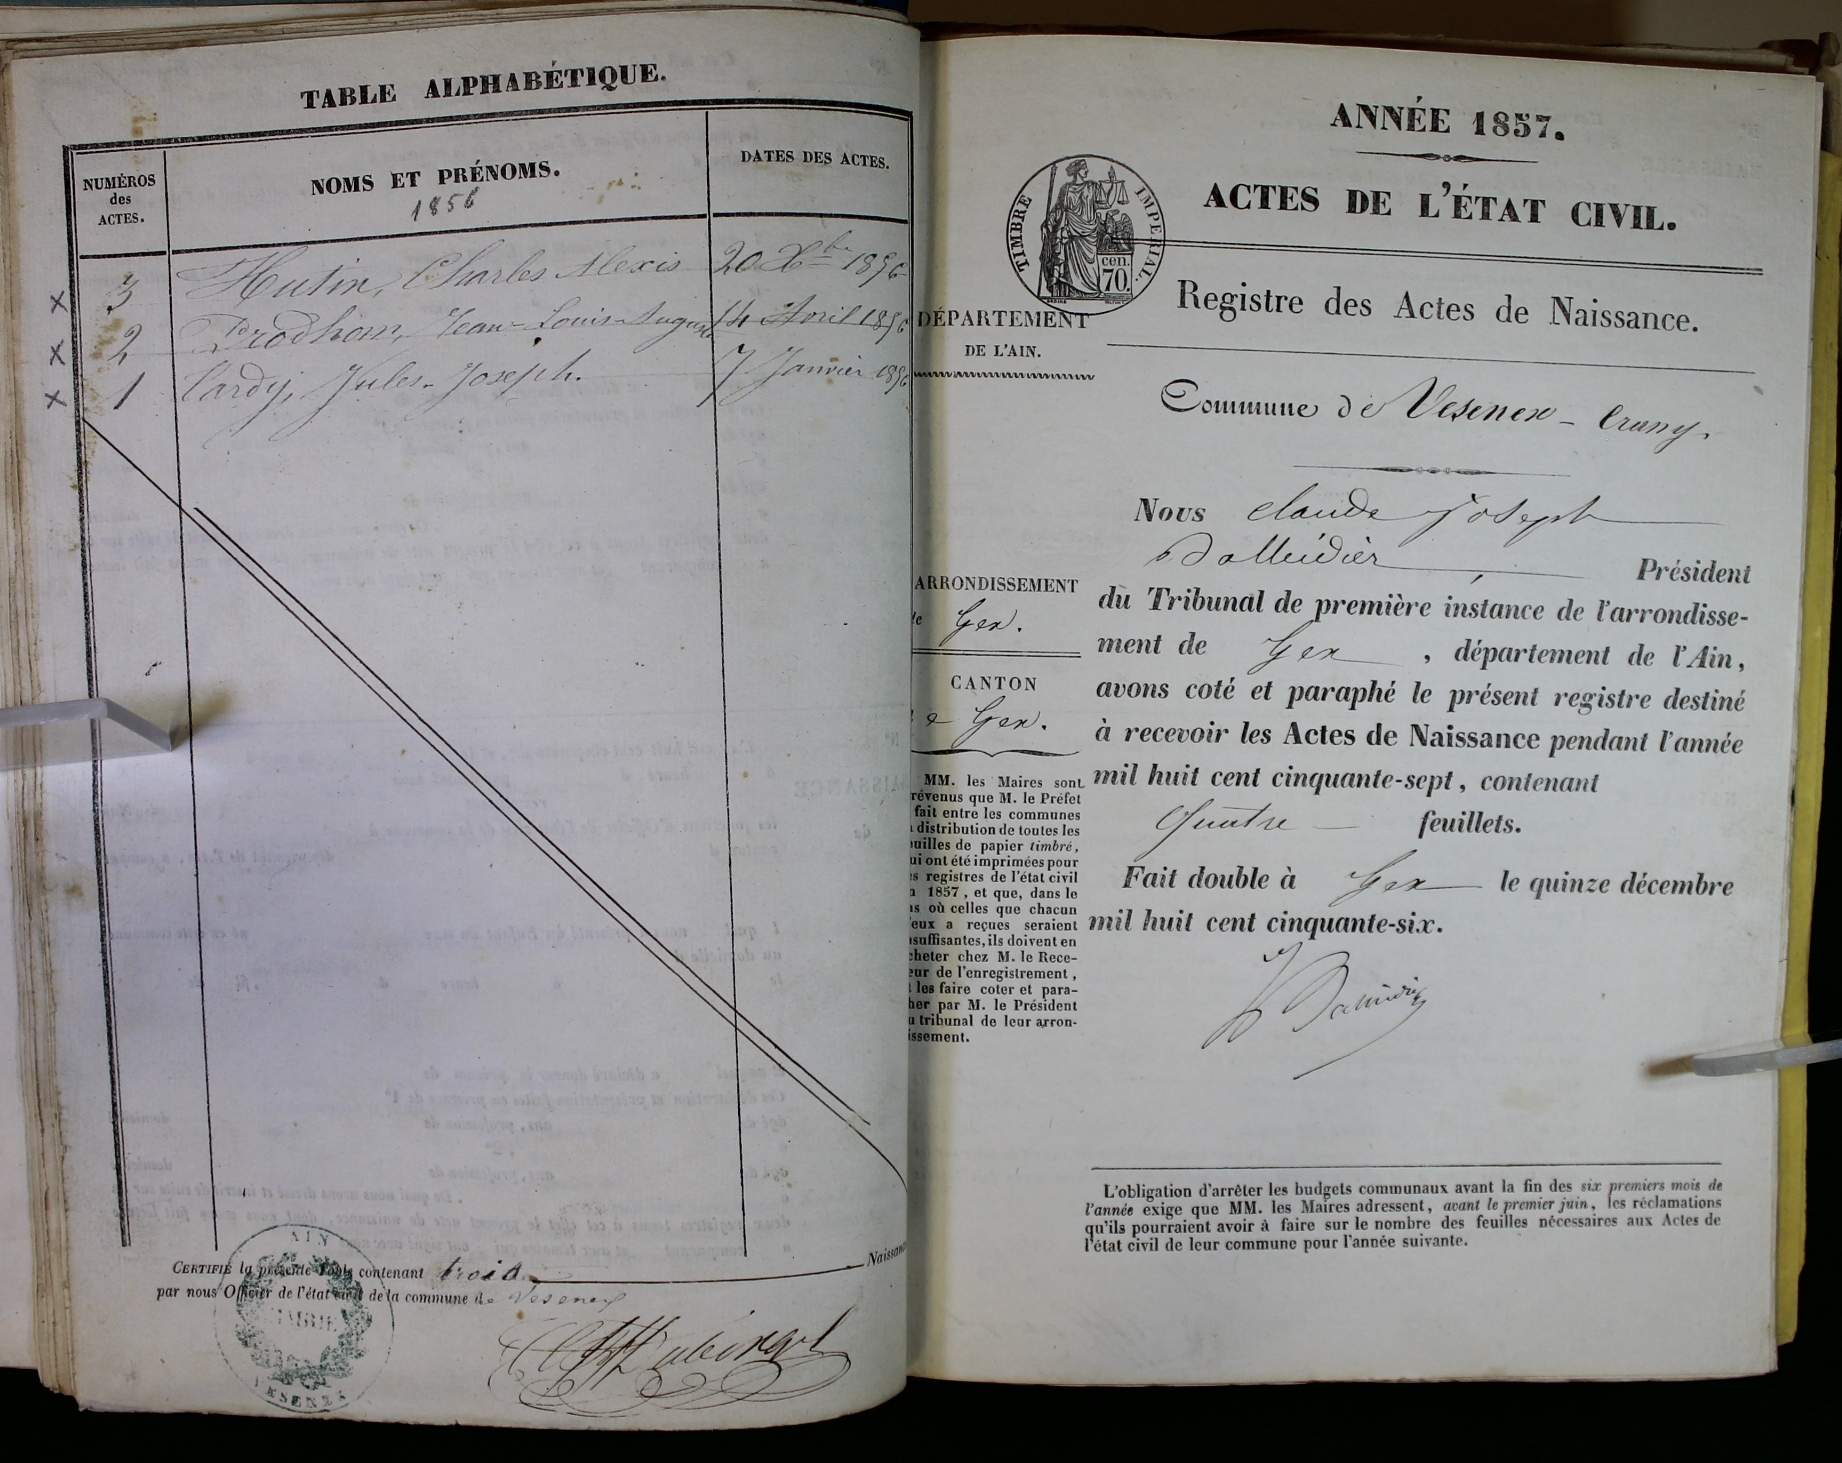 TABLE ALPHABÉTIQUE.
NUMÉROS
des
ACTES.
NOMS ET PRÉNOMS.
1856
DATES DES ACTES.
3 Hutin, Charles Alexis 20 Xbre 1856
2 Prodhom, Jean-Louis-August 14 Avril 1856
1 Tardy, Jules-Joseph. 7 Janvier 1856
CERTIFIÉ la présente Table contenant trois Naissan
par nous Officier de l'état civil de la commune de Vesenex
AIN
MAIRIE
VESENEX
ANNÉE 1857.
ACTES DE L'ÉTAT CIVIL.
TIMBRE IMPERIAL.
70.
cen.
Registre des Actes de Naissance.
DÉPARTEMENT
DE L'AIN.
Commune de Vesenex - Crassy.
Nous Claude Joseph
Président
du Tribunal de première instance de l'arrondisse-
ment de Gex, département de l'Ain,
avons coté et paraphé le présent registre destiné
à recevoir les Actes de Naissance pendant l'année
mil huit cent cinquante-sept, contenant
Quatre feuillets.
Fait double à Gex le quinze décembre
mil huit cent cinquante-six.
ARRONDISSEMENT
de Gex.
CANTON
de Gex.
MM. les Maires sont
révenus que M. le Préfet
fait entre les communes
distribution de toutes les
euilles de papier timbré,
ui ont été imprimées pour
es registres de l'état civil
n 1857, et que, dans le
as où celles que chacun
'eux a reçues seraient
nsuffisantes, ils doivent en
cheter chez M. le Rece-
eur de l'enregistrement,
t les faire coter et para-
her par M. le Président
u tribunal de leur arron-
issement.
L'obligation d'arrêter les budgets communaux avant la fin des six premiers mois de
l'année exige que MM. les Maires adressent, avant le premier juin, les réclamations
qu'ils pourraient avoir à faire sur le nombre des feuilles nécessaires aux Actes de
l'état civil de leur commune pour l'année suivante.